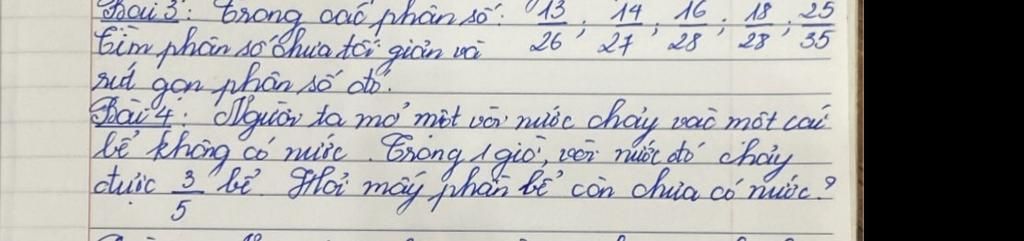 Bài 3: Trong các phân số: 13/26; 14/27; 16/28; 18/28; 25/35
tìm phân số chưa tối giản và
rút gọn phân số đó.
Bài 4: Người ta mở một vòi nước chảy vào một cái
bể không có nước. Trong 1 giờ, vòi nước đó chảy
được 3/5 bể. Hỏi mấy phần bể còn chưa có nước?